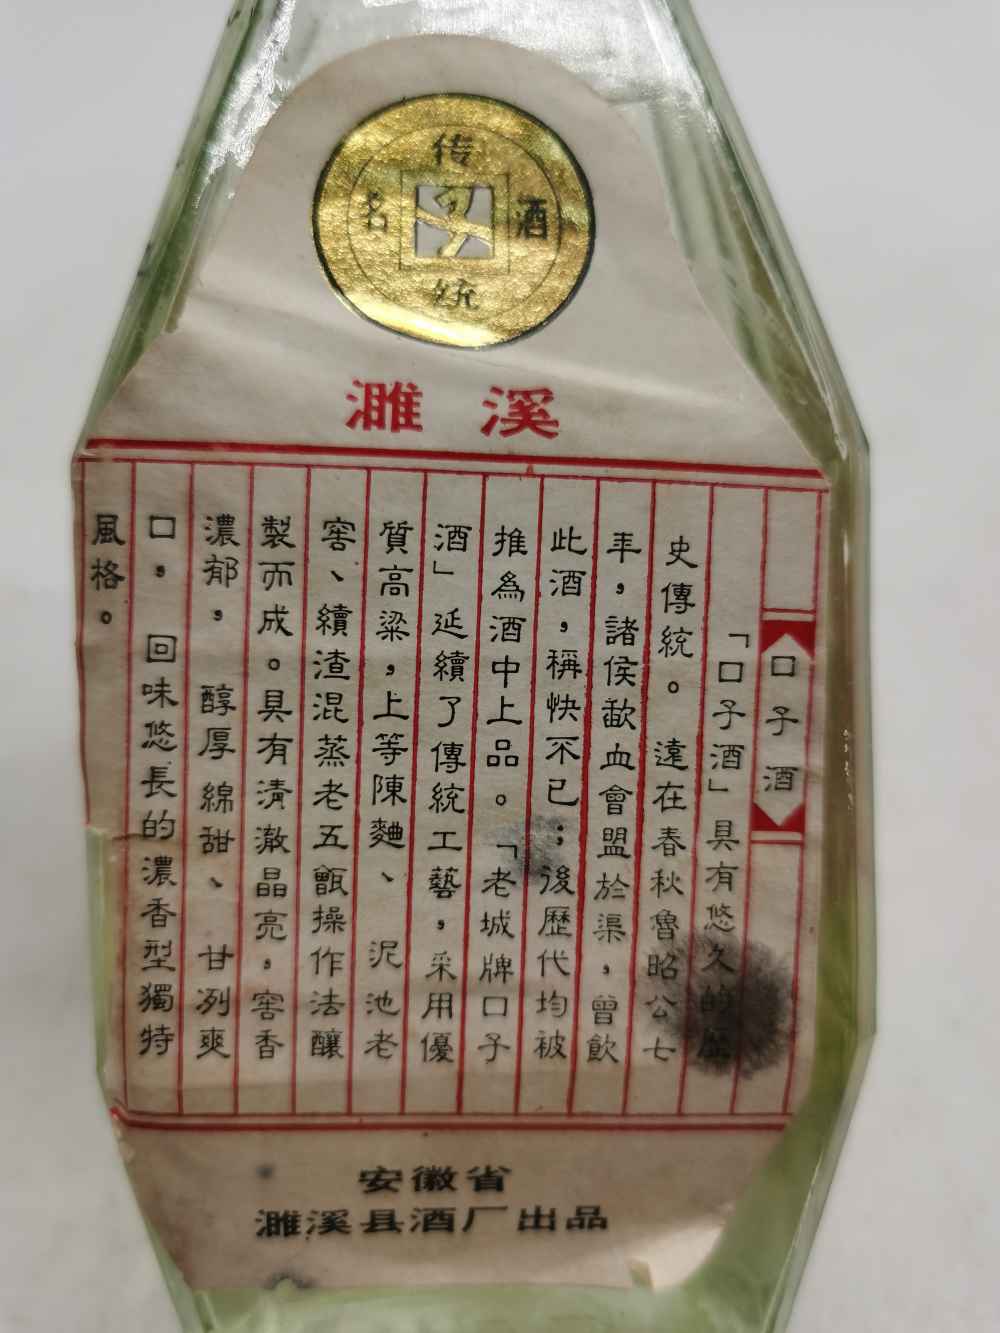 传
名 酒
统
濉溪
口子酒
「口子酒」具有悠久的歷
史傳統。遠在春秋魯昭公七
年，諸侯歃血會盟於渠，曾飲
此酒，稱快不已；後歷代均被
推為酒中上品。「老城牌口子
酒」延續了傳統工藝，采用優
質高粱，上等陳麯、泥池老
窖、續渣混蒸老五甑操作法釀
製而成。具有清澈晶亮，窖香
濃郁，醇厚綿甜、甘冽爽
口，回味悠長的濃香型獨特
風格。
安徽省
濉溪县酒厂出品